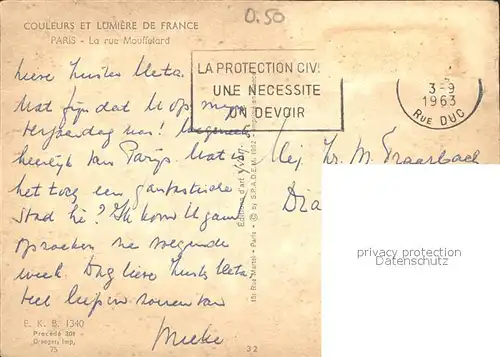 COULEURS ET LUMIÈRE DE FRANCE
0.50
PARIS - La rue Mouffetard
Lieve Zuster Meta.
Wat fijn dat U op mijn
Verjaardag was!
heerlijk van Parijs. Wat is
het toch een fantastische
stad hè? Ik kom U gauw
opzoeken de volgende
week. Dag lieve Zuster Meta,
veel liefs en zoenen van
Mieke
LA PROTECTION CIV
UNE NECESSITE
UN DEVOIR
3-9
1963
RUE DUC
Mej. Zr. M. Traarbach
Dra
Editions d'art yvon
15, Rue Martel - Paris - © by S.P.A.D.E.M. 1962
privacy protection
Datenschutz
E. K. B. 1340
Procédé 301
Draeger, Imp.
75
32